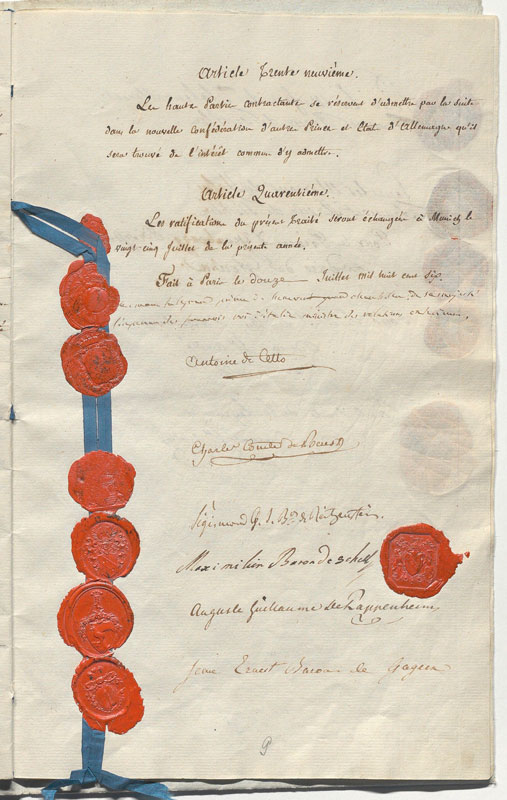 Article Trente neuvième.
Les hautes Parties contractantes se réservent d'admettre par la suite
dans la nouvelle Confédération d'autres Princes et Etats d'Allemagne qu'il
sera trouvé de l'intérêt commun d'y admettre.
Article Quarantième.
Les ratifications du présent Traité seront échangées à Munich le
vingt-cinq Juillet de la présente année.
Fait à Paris le douze Juillet mil huit cent six.
prince de Bénévent grand chambellan de sa majesté
l'empereur des français roi d'italie ministre des relations extérieures
Antoine de Cetto
Charles Comte de Beust
Sigismond C. J. Bon de Reitzenstein.
Maximilien Baron de Schell
Auguste Guillaume de Pappenheim
Jean Ernest Baron de Gagern
9